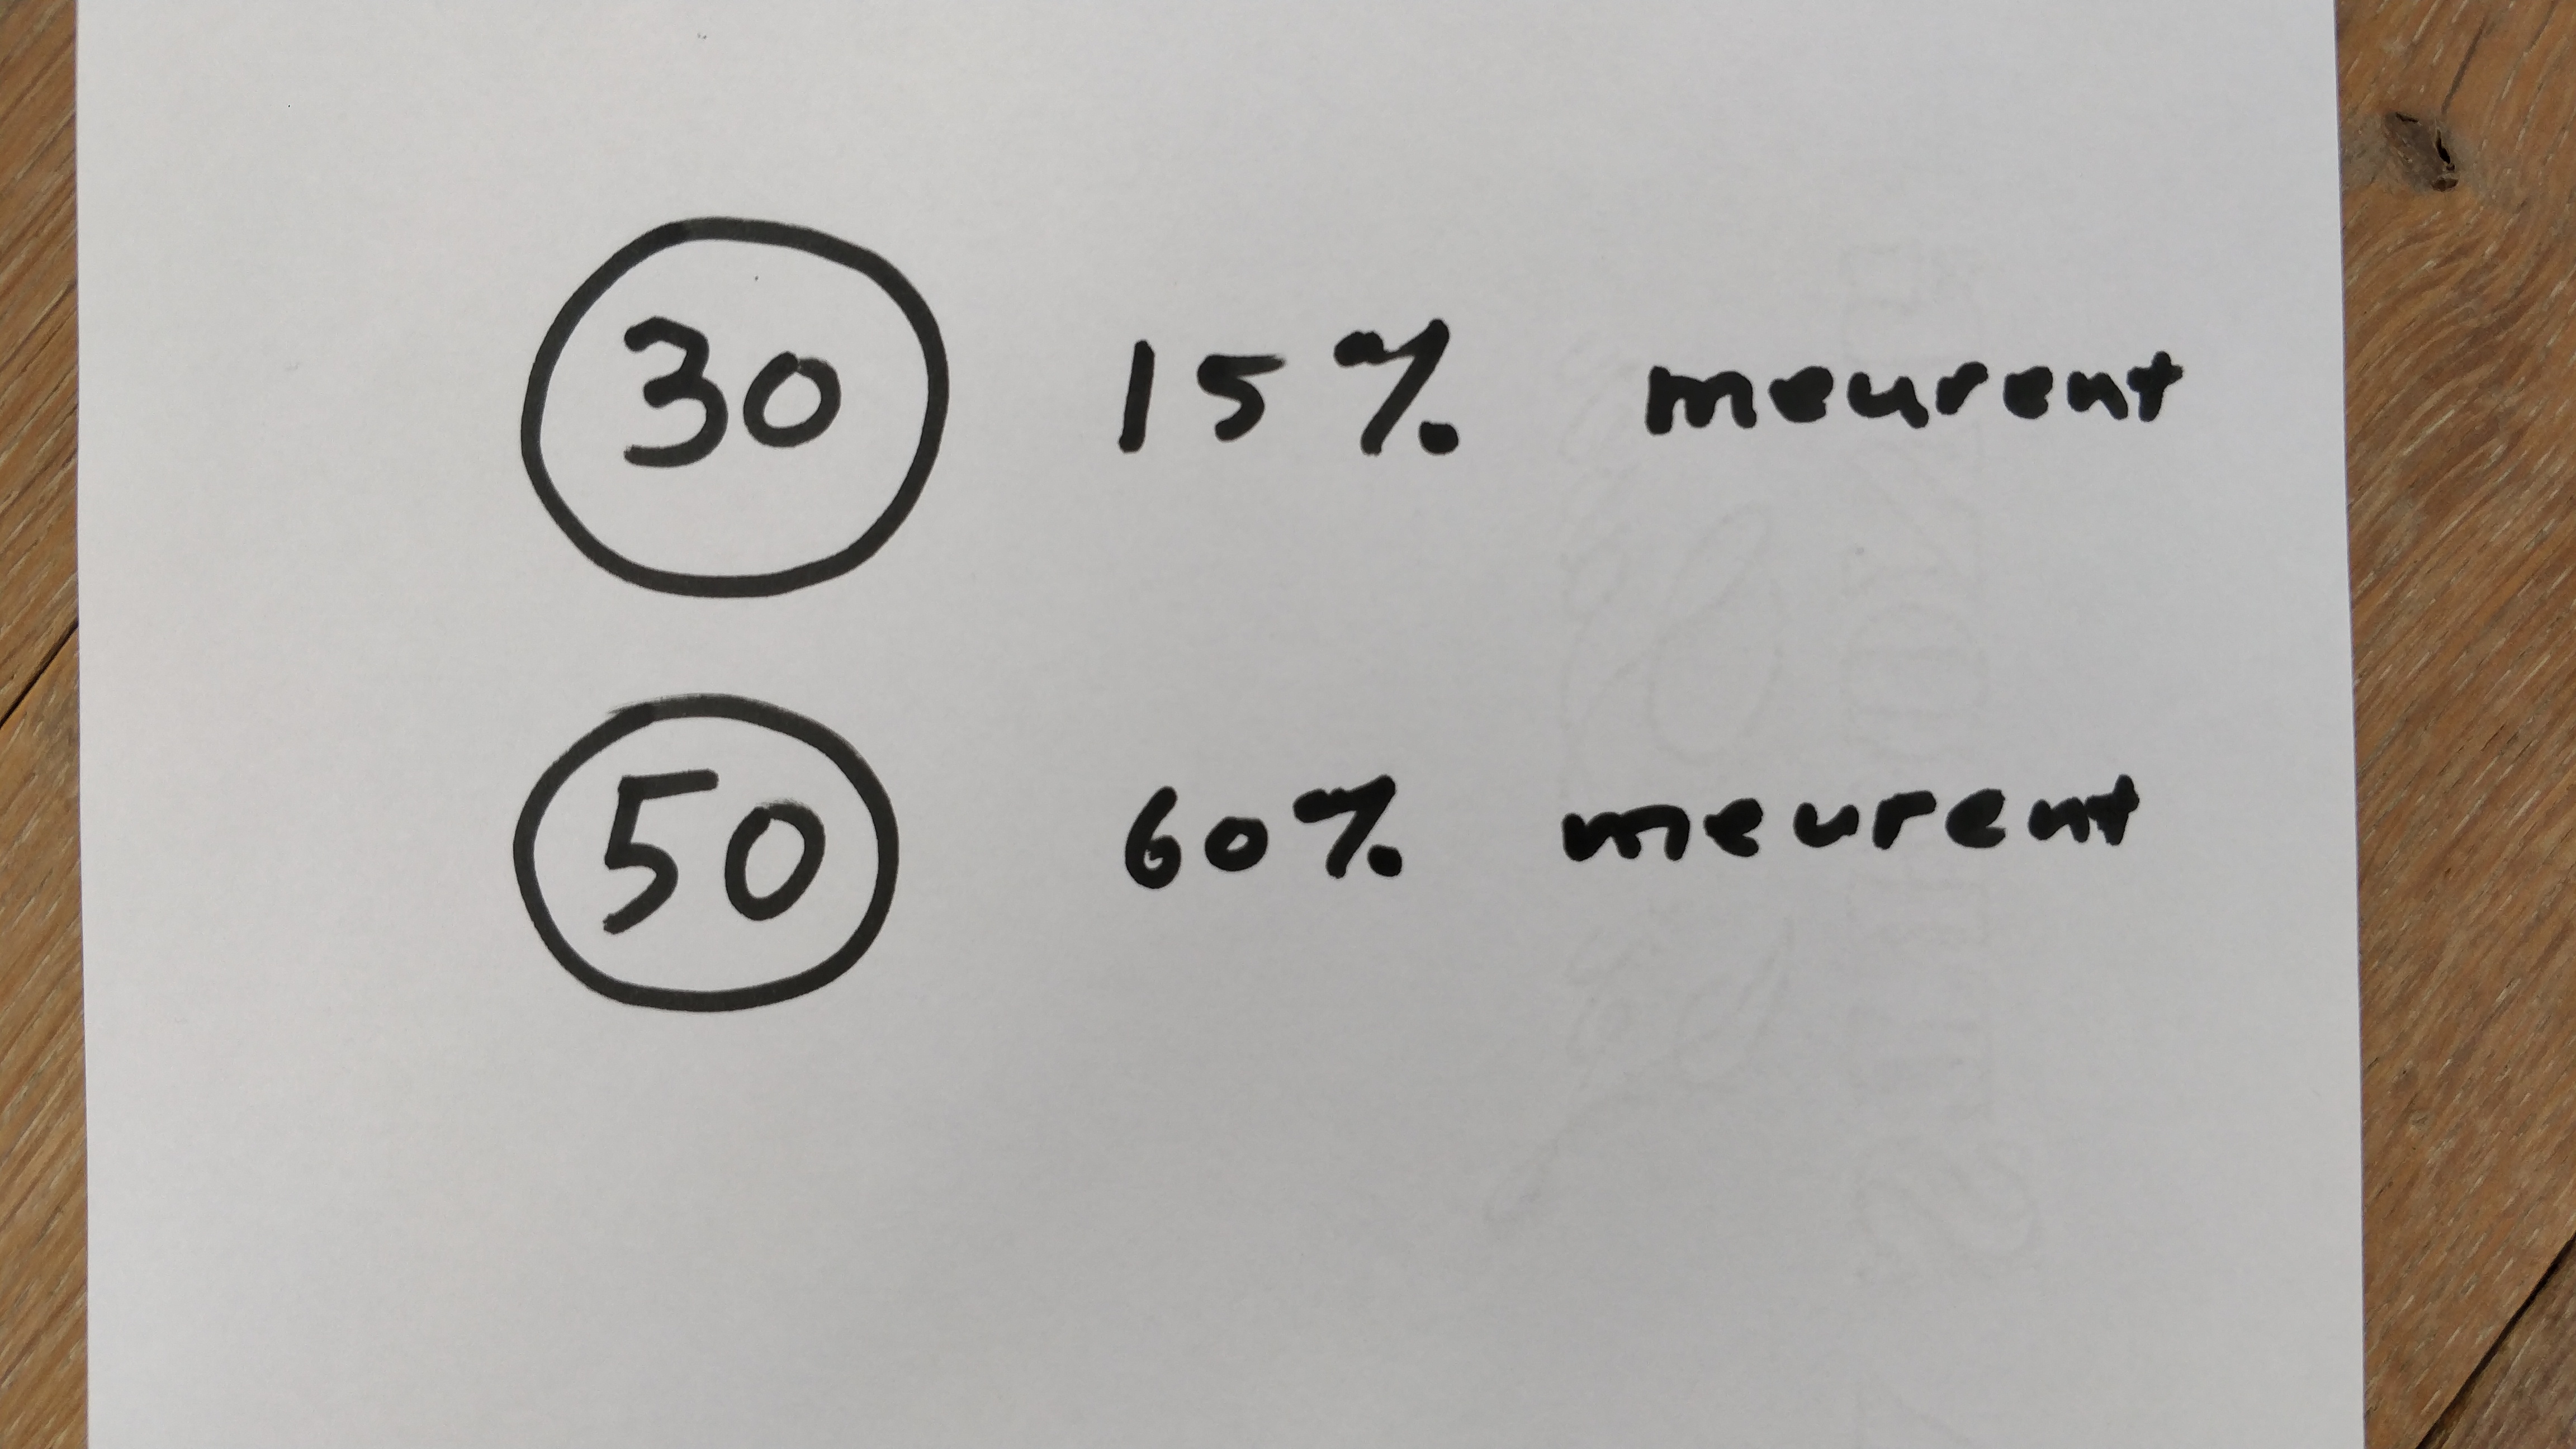 30 15% meurent
50 60% meurent